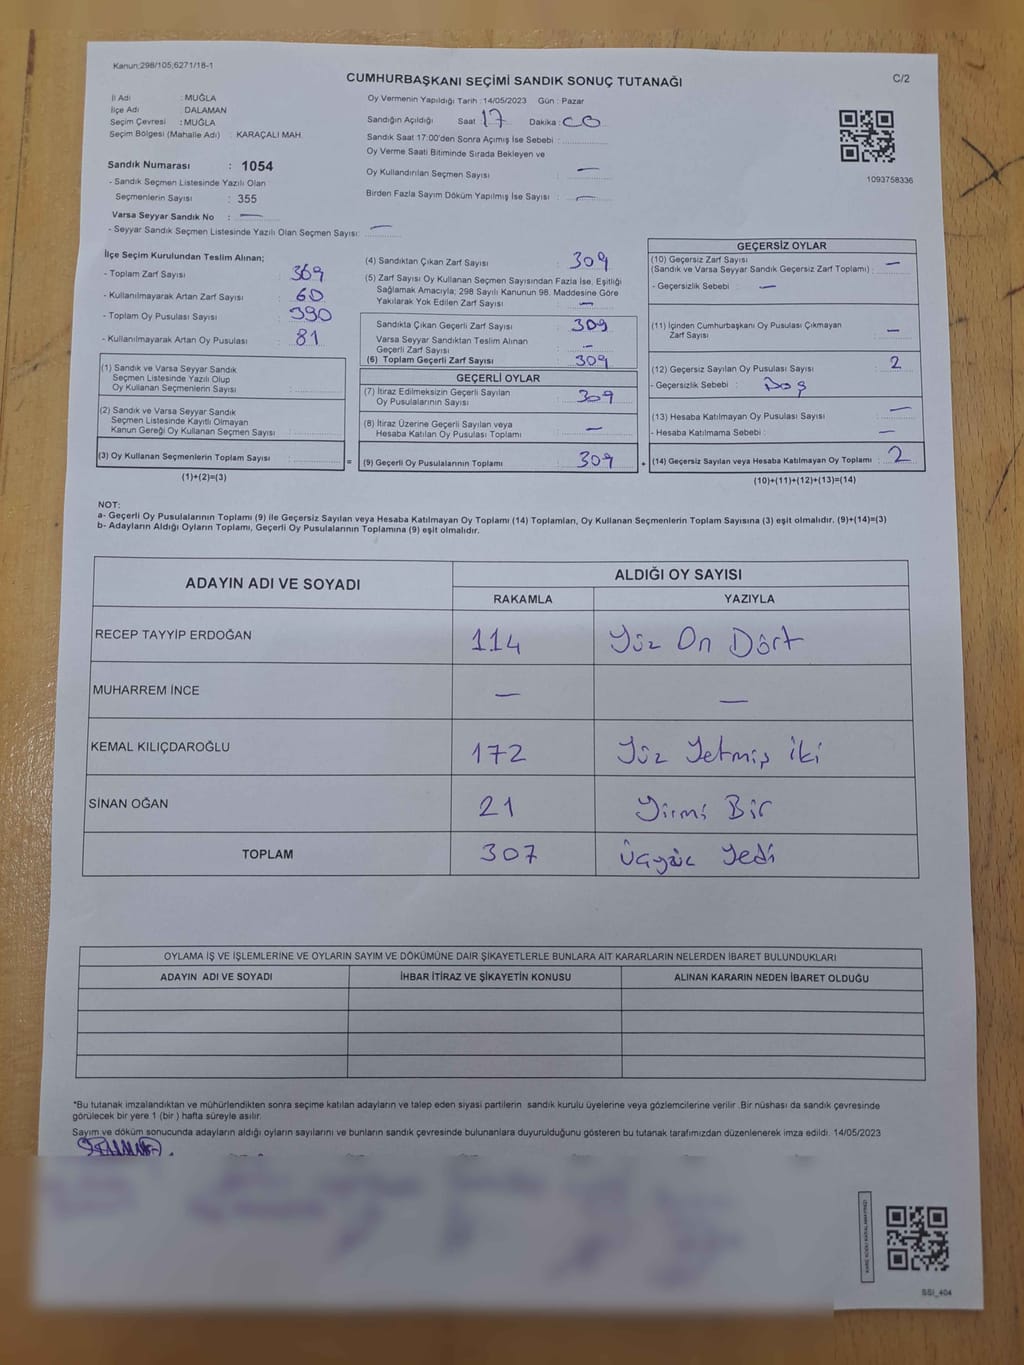 Kanun;298/105;6271/18-1
CUMHURBAŞKANI SEÇİMİ SANDIK SONUÇ TUTANAĞI
C/2
İl Adı : MUĞLA
İlçe Adı : DALAMAN
Seçim Çevresi : MUĞLA
Seçim Bölgesi (Mahalle Adı) : KARAÇALI MAH.
Sandık Numarası : 1054
- Sandık Seçmen Listesinde Yazılı Olan
Seçmenlerin Sayısı : 355
Varsa Seyyar Sandık No : —
- Seyyar Sandık Seçmen Listesinde Yazılı Olan Seçmen Sayısı: —
Oy Vermenin Yapıldığı Tarih :14/05/2023 Gün : Pazar
Sandığın Açıldığı Saat : 17 Dakika : 00
Sandık Saat 17:00'den Sonra Açımış İse Sebebi :
Oy Verme Saati Bitiminde Sırada Bekleyen ve
Oy Kullandırılan Seçmen Sayısı : —
Birden Fazla Sayım Döküm Yapılmış İse Sayısı : —
1093758336
İlçe Seçim Kurulundan Teslim Alınan;
- Toplam Zarf Sayısı : 369
- Kullanılmayarak Artan Zarf Sayısı : 60
- Toplam Oy Pusulası Sayısı : 390
- Kullanılmayarak Artan Oy Pusulası : 81
(1) Sandık ve Varsa Seyyar Sandık
Seçmen Listesinde Yazılı Olup
Oy Kullanan Seçmenlerin Sayısı :
(2) Sandık ve Varsa Seyyar Sandık
Seçmen Listesinde Kayıtlı Olmayan
Kanun Gereği Oy Kullanan Seçmen Sayısı :
(3) Oy Kullanan Seçmenlerin Toplam Sayısı :
(1)+(2)=(3)
(4) Sandıktan Çıkan Zarf Sayısı : 309
(5) Zarf Sayısı Oy Kullanan Seçmen Sayısından Fazla İse, Eşitliği
Sağlamak Amacıyla; 298 Sayılı Kanunun 98. Maddesine Göre
Yakılarak Yok Edilen Zarf Sayısı : —
Sandıkta Çıkan Geçerli Zarf Sayısı : 309
Varsa Seyyar Sandıktan Teslim Alınan
Geçerli Zarf Sayısı : —
(6) Toplam Geçerli Zarf Sayısı : 309
GEÇERLİ OYLAR
(7) İtiraz Edilmeksizin Geçerli Sayılan
Oy Pusulalarının Sayısı : 309
(8) İtiraz Üzerine Geçerli Sayılan veya
Hesaba Katılan Oy Pusulası Toplamı : —
= (9) Geçerli Oy Pusulalarının Toplamı : 309
GEÇERSİZ OYLAR
(10) Geçersiz Zarf Sayısı
(Sandık ve Varsa Seyyar Sandık Geçersiz Zarf Toplamı) : —
- Geçersizlik Sebebi : —
(11) İçinden Cumhurbaşkanı Oy Pusulası Çıkmayan
Zarf Sayısı : —
(12) Geçersiz Sayılan Oy Pusulası Sayısı : 2
- Geçersizlik Sebebi : Boş
(13) Hesaba Katılmayan Oy Pusulası Sayısı : —
- Hesaba Katılmama Sebebi : —
+ (14) Geçersiz Sayılan veya Hesaba Katılmayan Oy Toplamı : 2
(10)+(11)+(12)+(13)=(14)
NOT:
a- Geçerli Oy Pusulalarının Toplamı (9) ile Geçersiz Sayılan veya Hesaba Katılmayan Oy Toplamı (14) Toplamları, Oy Kullanan Seçmenlerin Toplam Sayısına (3) eşit olmalıdır. (9)+(14)=(3)
b- Adayların Aldığı Oyların Toplamı, Geçerli Oy Pusulalarının Toplamına (9) eşit olmalıdır.
ADAYIN ADI VE SOYADI
ALDIĞI OY SAYISI
RAKAMLA YAZIYLA
RECEP TAYYİP ERDOĞAN 114 Yüz On Dört
MUHARREM İNCE — —
KEMAL KILIÇDAROĞLU 172 Yüz Yetmiş İki
SİNAN OĞAN 21 Yirmi Bir
TOPLAM 307 Üçyüz Yedi
OYLAMA İŞ VE İŞLEMLERİNE VE OYLARIN SAYIM VE DÖKÜMÜNE DAİR ŞİKAYETLERLE BUNLARA AİT KARARLARIN NELERDEN İBARET BULUNDUKLARI
ADAYIN ADI VE SOYADI İHBAR İTİRAZ VE ŞİKAYETİN KONUSU ALINAN KARARIN NEDEN İBARET OLDUĞU
*Bu tutanak imzalandıktan ve mühürlendikten sonra seçime katılan adayların ve talep eden siyasi partilerin sandık kurulu üyelerine veya gözlemcilerine verilir .Bir nüshası da sandık çevresinde
görülecek bir yere 1 (bir ) hafta süreyle asılır.
Sayım ve döküm sonucunda adayların aldığı oyların sayılarını ve bunların sandık çevresinde bulunanlara duyurulduğunu gösteren bu tutanak tarafımızdan düzenlenerek imza edildi. 14/05/2023
SSI_404